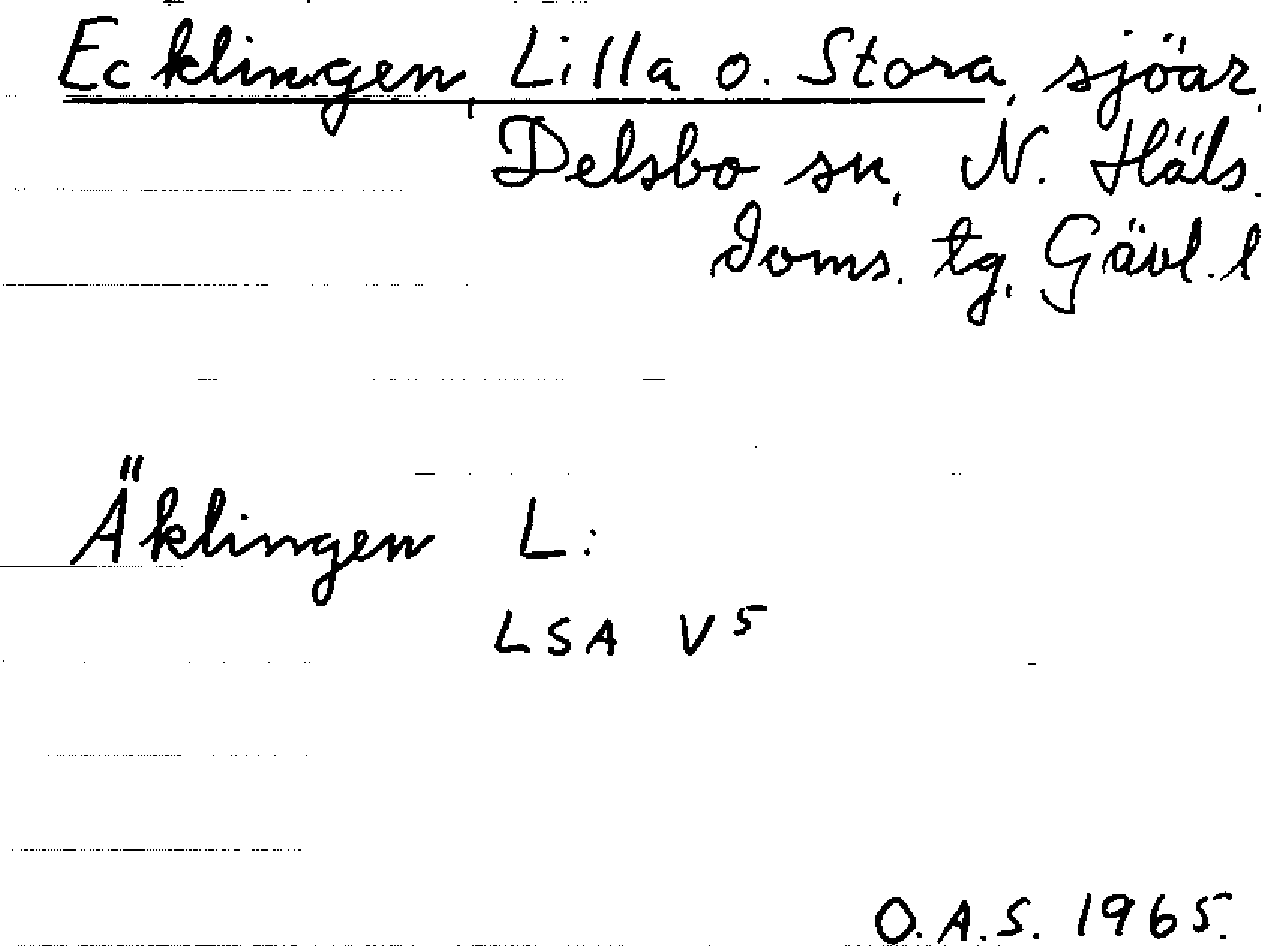 Ecklingen, Lilla o. Stora, sjöar,
Delsbo sn, N. Häls.
Doms. tg, Gävl. l
Äklingen L:
LSA V 5
O.A.S. 1965.